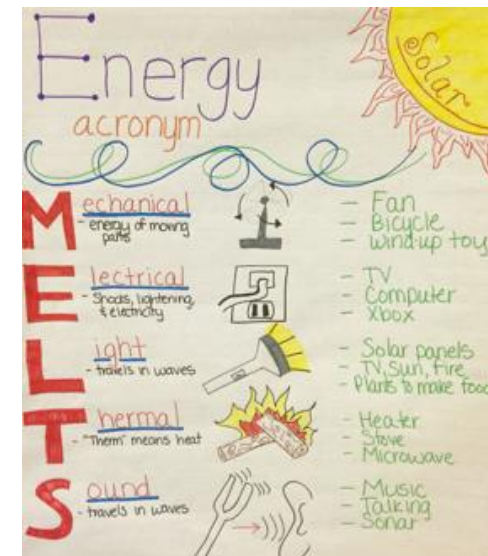 Energy
acronym
Solar
Mechanical
- energy of moving
parts
- Fan
- Bicycle
- wind-up toy
Electrical
- Shocks, lightening,
& electricity
- TV
- Computer
- Xbox
Light
- travels in waves
- Solar panels
- TV, Sun, Fire
- Plants to make food
Thermal
- "Therm" means heat
- Heater
- Stove
- Microwave
Sound
- travels in waves
- Music
- Talking
- Sonar